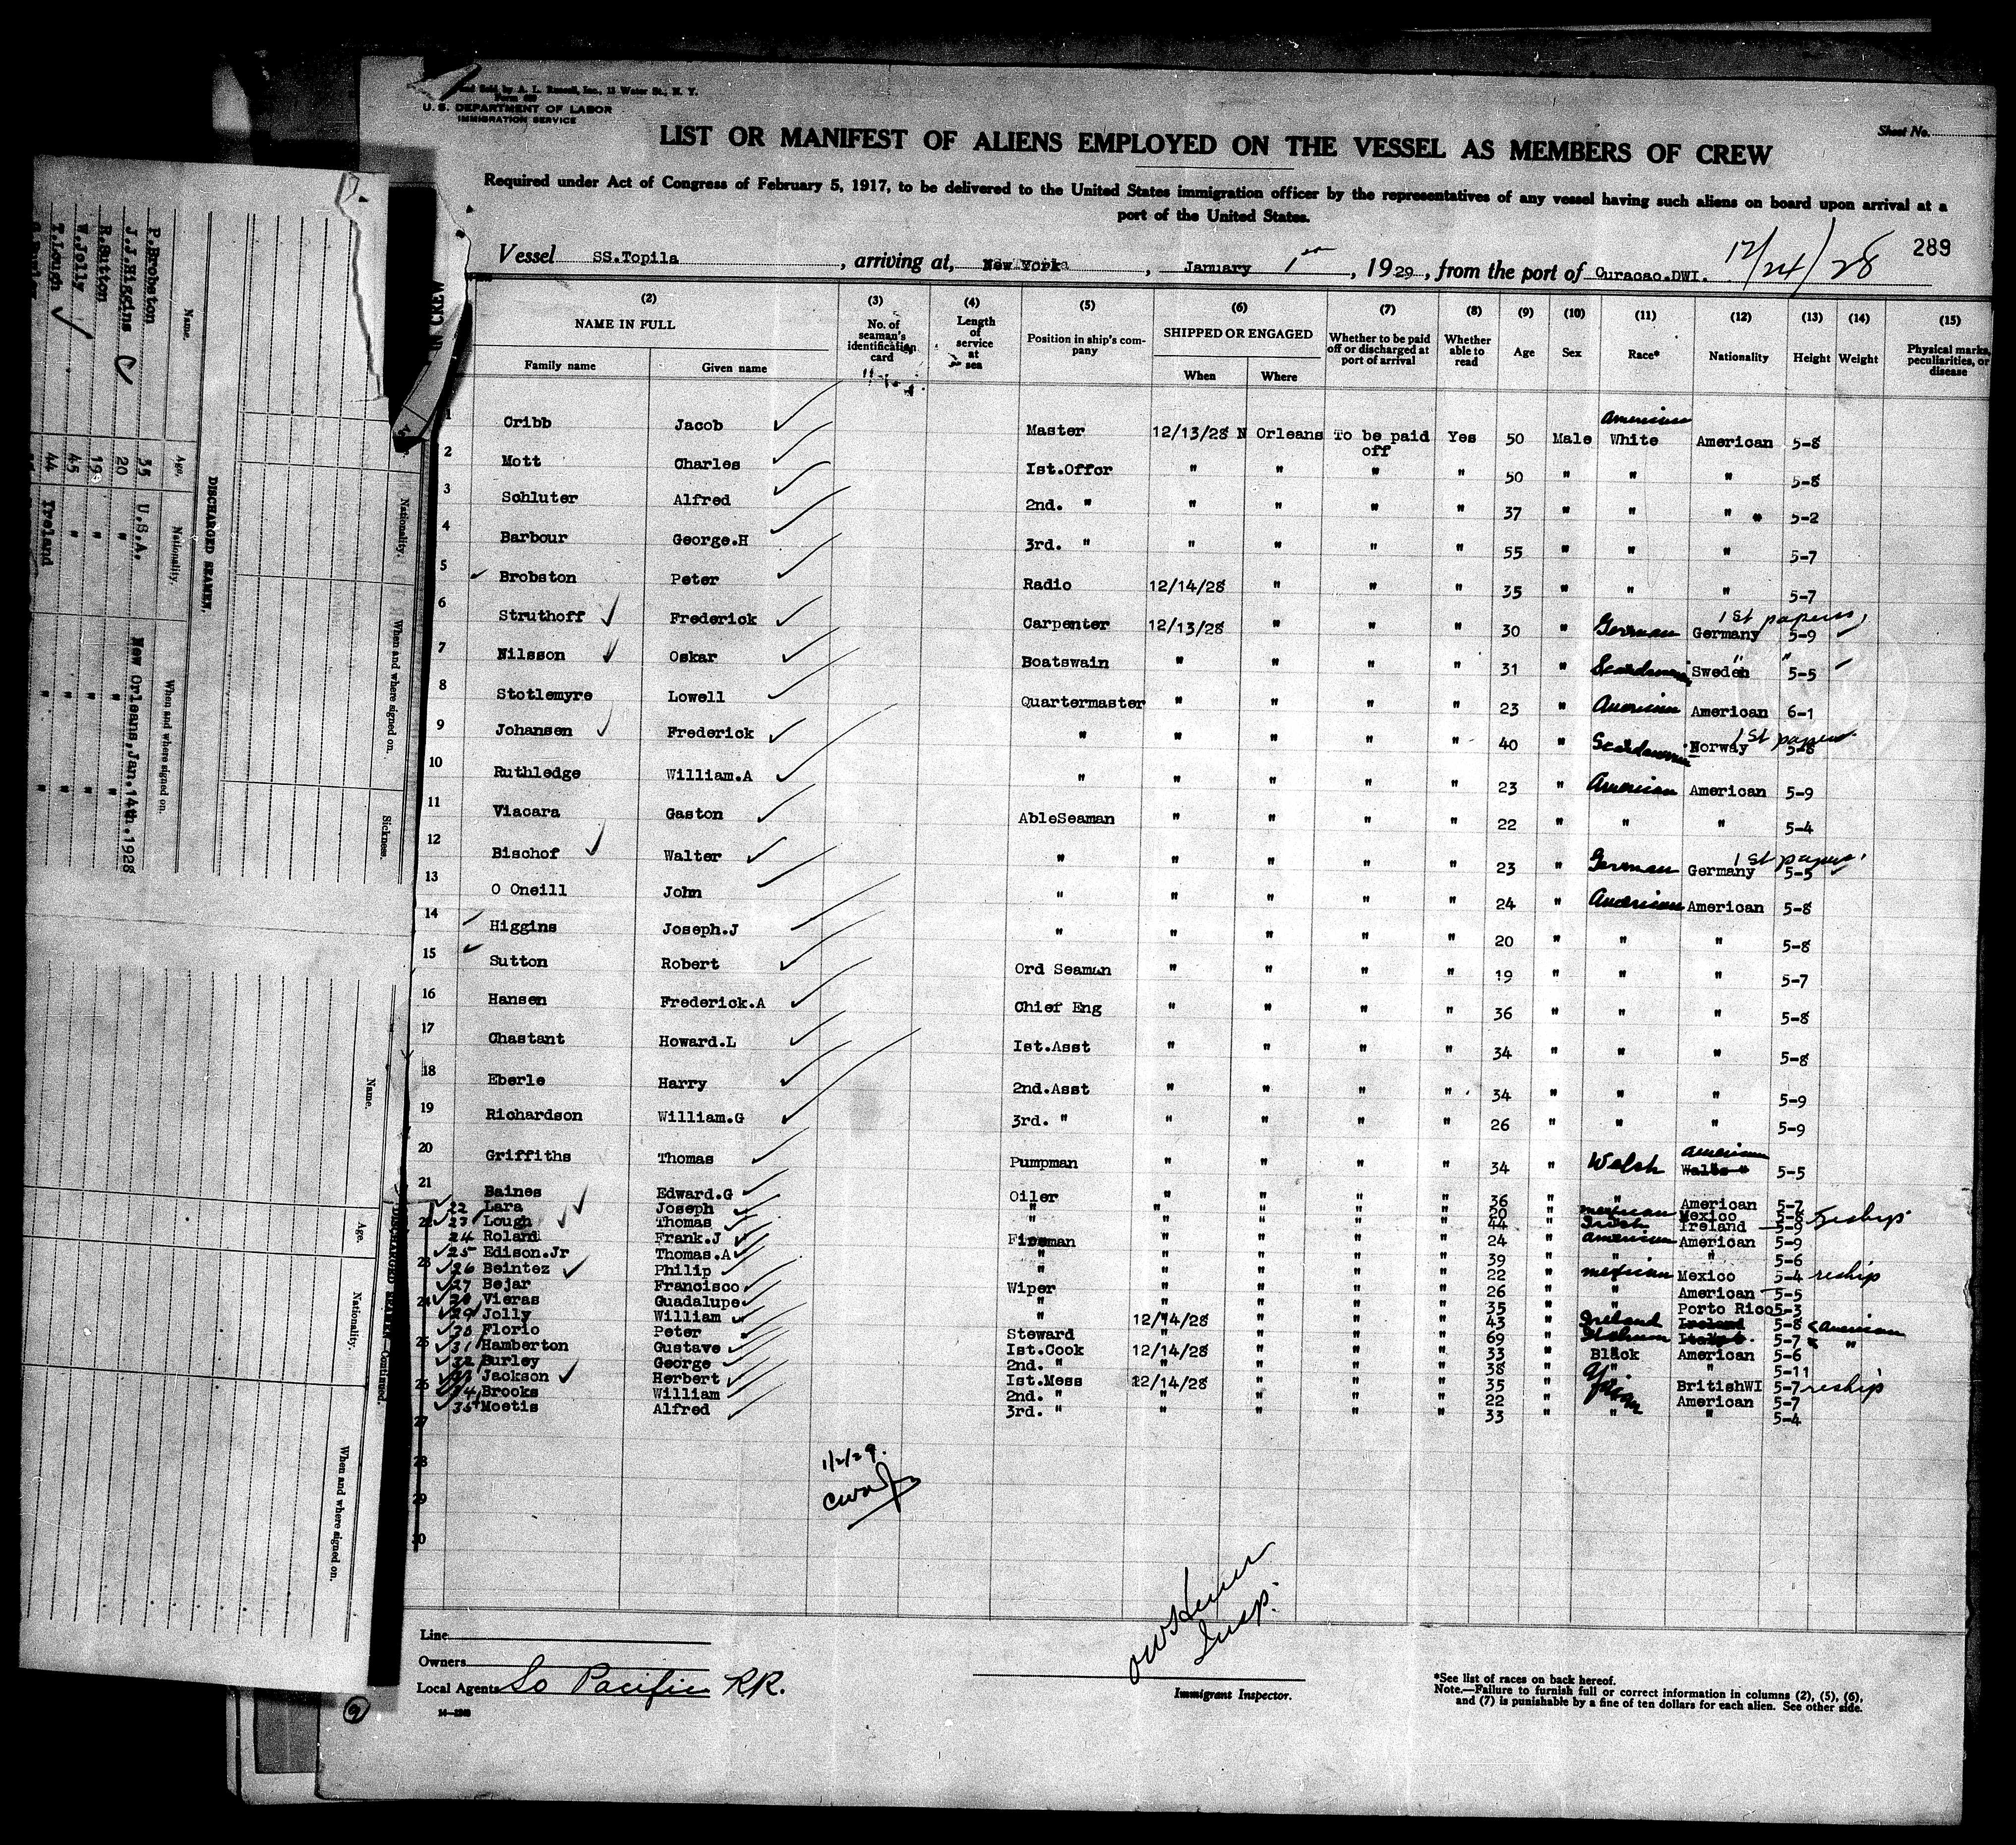 and Sold by A. L. Russell, Inc., 11 Water St., N. Y.
U. S. DEPARTMENT OF LABOR
IMMIGRATION SERVICE
Sheet No.
LIST OR MANIFEST OF ALIENS EMPLOYED ON THE VESSEL AS MEMBERS OF CREW
Required under Act of Congress of February 5, 1917, to be delivered to the United States immigration officer by the representatives of any vessel having such aliens on board upon arrival at a
port of the United States.
289
Vessel SS.Topila , arriving at, New York , January 1 , 1929, from the port of Curacao.DWI. 12/24/28
(2) (3) (4) (5) (6) (7) (8) (9) (10) (11) (12) (13) (14) (15)
NAME IN FULL No. of seaman's identification card Length of service at sea Position in ship's company SHIPPED OR ENGAGED Whether to be paid off or discharged at port of arrival Whether able to read Age Sex Race* Nationality Height Weight Physical marks, peculiarities, or disease
Family name Given name When Where
1 Cribb Jacob Master 12/13/28 N Orleans To be paid off Yes 50 Male American White American 5-8
2 Mott Charles Ist.Offcr " " " " 50 " " " 5-8
3 Schluter Alfred 2nd. " " " " " 37 " " " 5-2
4 Barbour George.H 3rd. " " " " " 55 " " " 5-7
5 Brobston Peter Radio 12/14/28 " " " 35 " " " 5-7
6 Struthoff Frederick Carpenter 12/13/28 " " " 30 " German Germany 1st papers 5-9
7 Nilsson Oskar Boatswain " " " " 31 " Sweden " " 5-5
8 Stotlemyre Lowell Quartermaster " " " " 23 " American American 6-1
9 Johansen Frederick " " " " " 40 " Norway 1st papers 5-8
10 Ruthledge William.A " " " " " 23 " American American 5-9
11 Viacara Gaston AbleSeaman " " " " 22 " " " 5-4
12 Bischof Walter " " " " " 23 " German Germany 1st papers 5-5
13 O Oneill John " " " " " 24 " American American 5-8
14 Higgins Joseph.J " " " " " 20 " " " 5-8
15 Sutton Robert Ord Seaman " " " " 19 " " " 5-7
16 Hansen Frederick.A Chief Eng " " " " 36 " " " 5-8
17 Chastant Howard.L Ist.Asst " " " " 34 " " " 5-8
18 Eberle Harry 2nd.Asst " " " " 34 " " " 5-9
19 Richardson William.G 3rd. " " " " " 26 " " " 5-9
20 Griffiths Thomas Pumpman " " " " 34 " Welsh American 5-5
21 Baines Edward.G Oiler " " " " 36 " " American 5-7
22 Lara Joseph " " " " " 20 " Mexican Mexico 5-8
23 Lough Thomas " " " " " 44 " Irish Ireland 5-9 reship
24 Roland Frank.J Fireman " " " " 24 " American American 5-9
25 Edison.Jr Thomas.A " " " " " 39 " " " 5-6
26 Beintez Philip " " " " " 22 " Mexican Mexico 5-4 reship
27 Bejar Francisco Wiper " " " " 26 " " American 5-5
28 Vieras Guadalupe " " " " " 35 " " Porto Rico 5-3
29 Jolly William " 12/14/28 " " " 43 " Ireland Ireland 5-8 American
30 Florio Peter Steward " " " " 69 " 5-7 "
31 Hamberton Gustave Ist.Cook 12/14/28 " " " 33 " Black American 5-6
32 Burley George 2nd. " " " " " 38 " " " 5-11
33 Jackson Herbert Ist.Mess 12/14/28 " " " 35 " BritishWI 5-7 reship
34 Brooks William 2nd. " " " " " 22 " American 5-7
35 Moetis Alfred 3rd. " " " " " 33 " " " 5-4
27
28
29
30
1/2/29.
Insp.
Line
Owners
Local Agents So Pacific RR.
Immigrant Inspector.
*See list of races on back hereof.
Note.—Failure to furnish full or correct information in columns (2), (5), (6),
and (7) is punishable by a fine of ten dollars for each alien. See other side.
DISCHARGED SEAMEN.
Name. Age. Nationality. When and where signed on.
P.Brobston 35 U.S.A. New Orleans,Jan.14th.1928
J.J.Higgins 20 " "
R.Sutton 19 " "
W.Jolly 45 " "
T.Lough 44 Ireland "
Nationality. When and where signed on. Sickness.
DISCHARGED SEAMEN—Continued.
Name. Age. Nationality. When and where signed on.
IN CREW
9